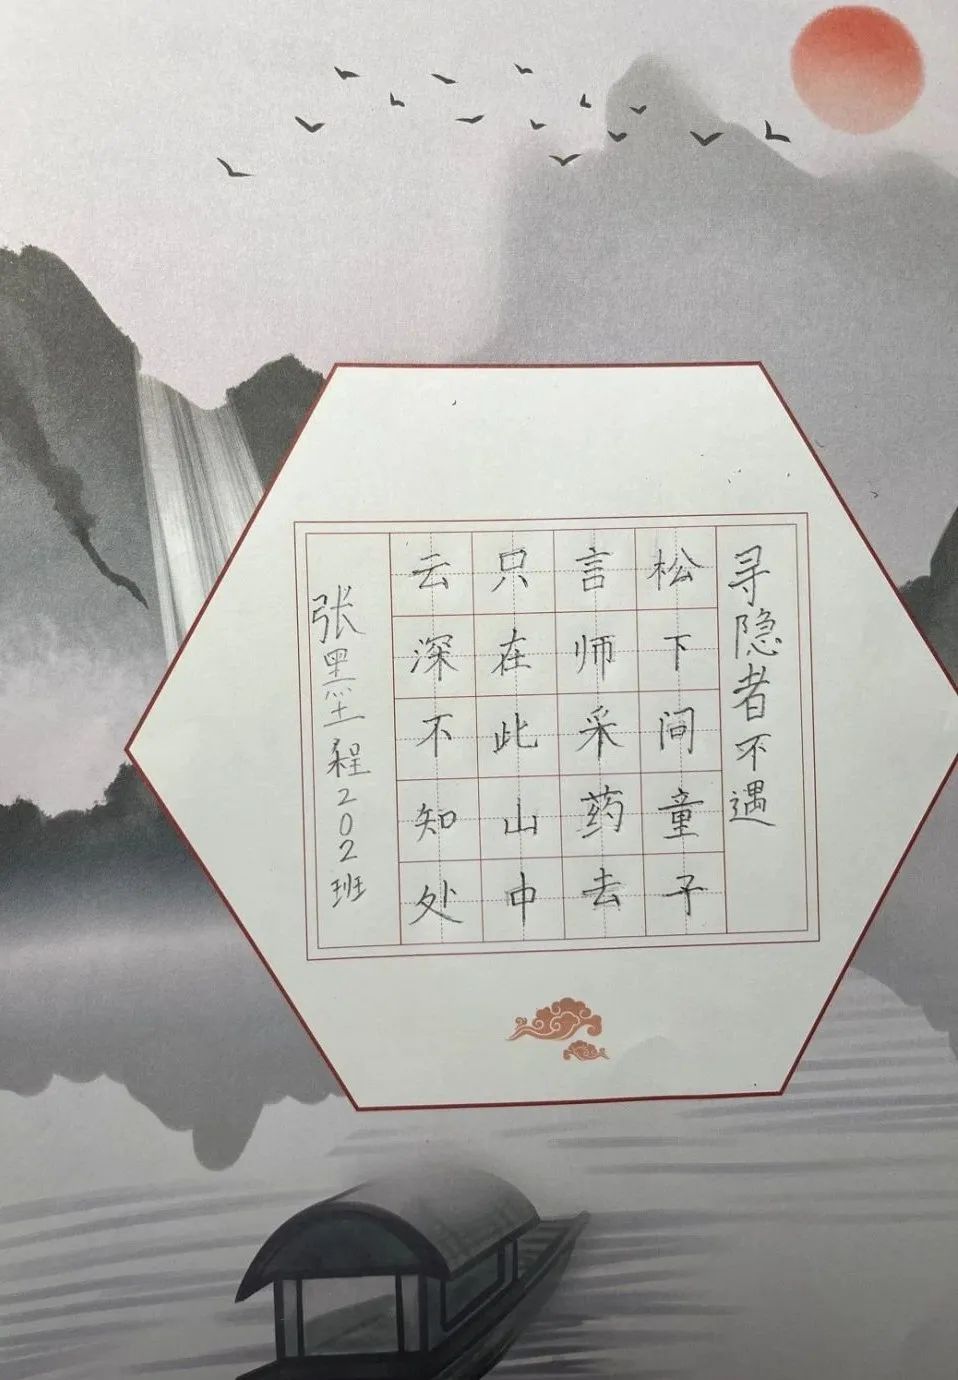 寻隐者不遇
松下问童子
言师采药去
只在此山中
云深不知处
张墨程202班